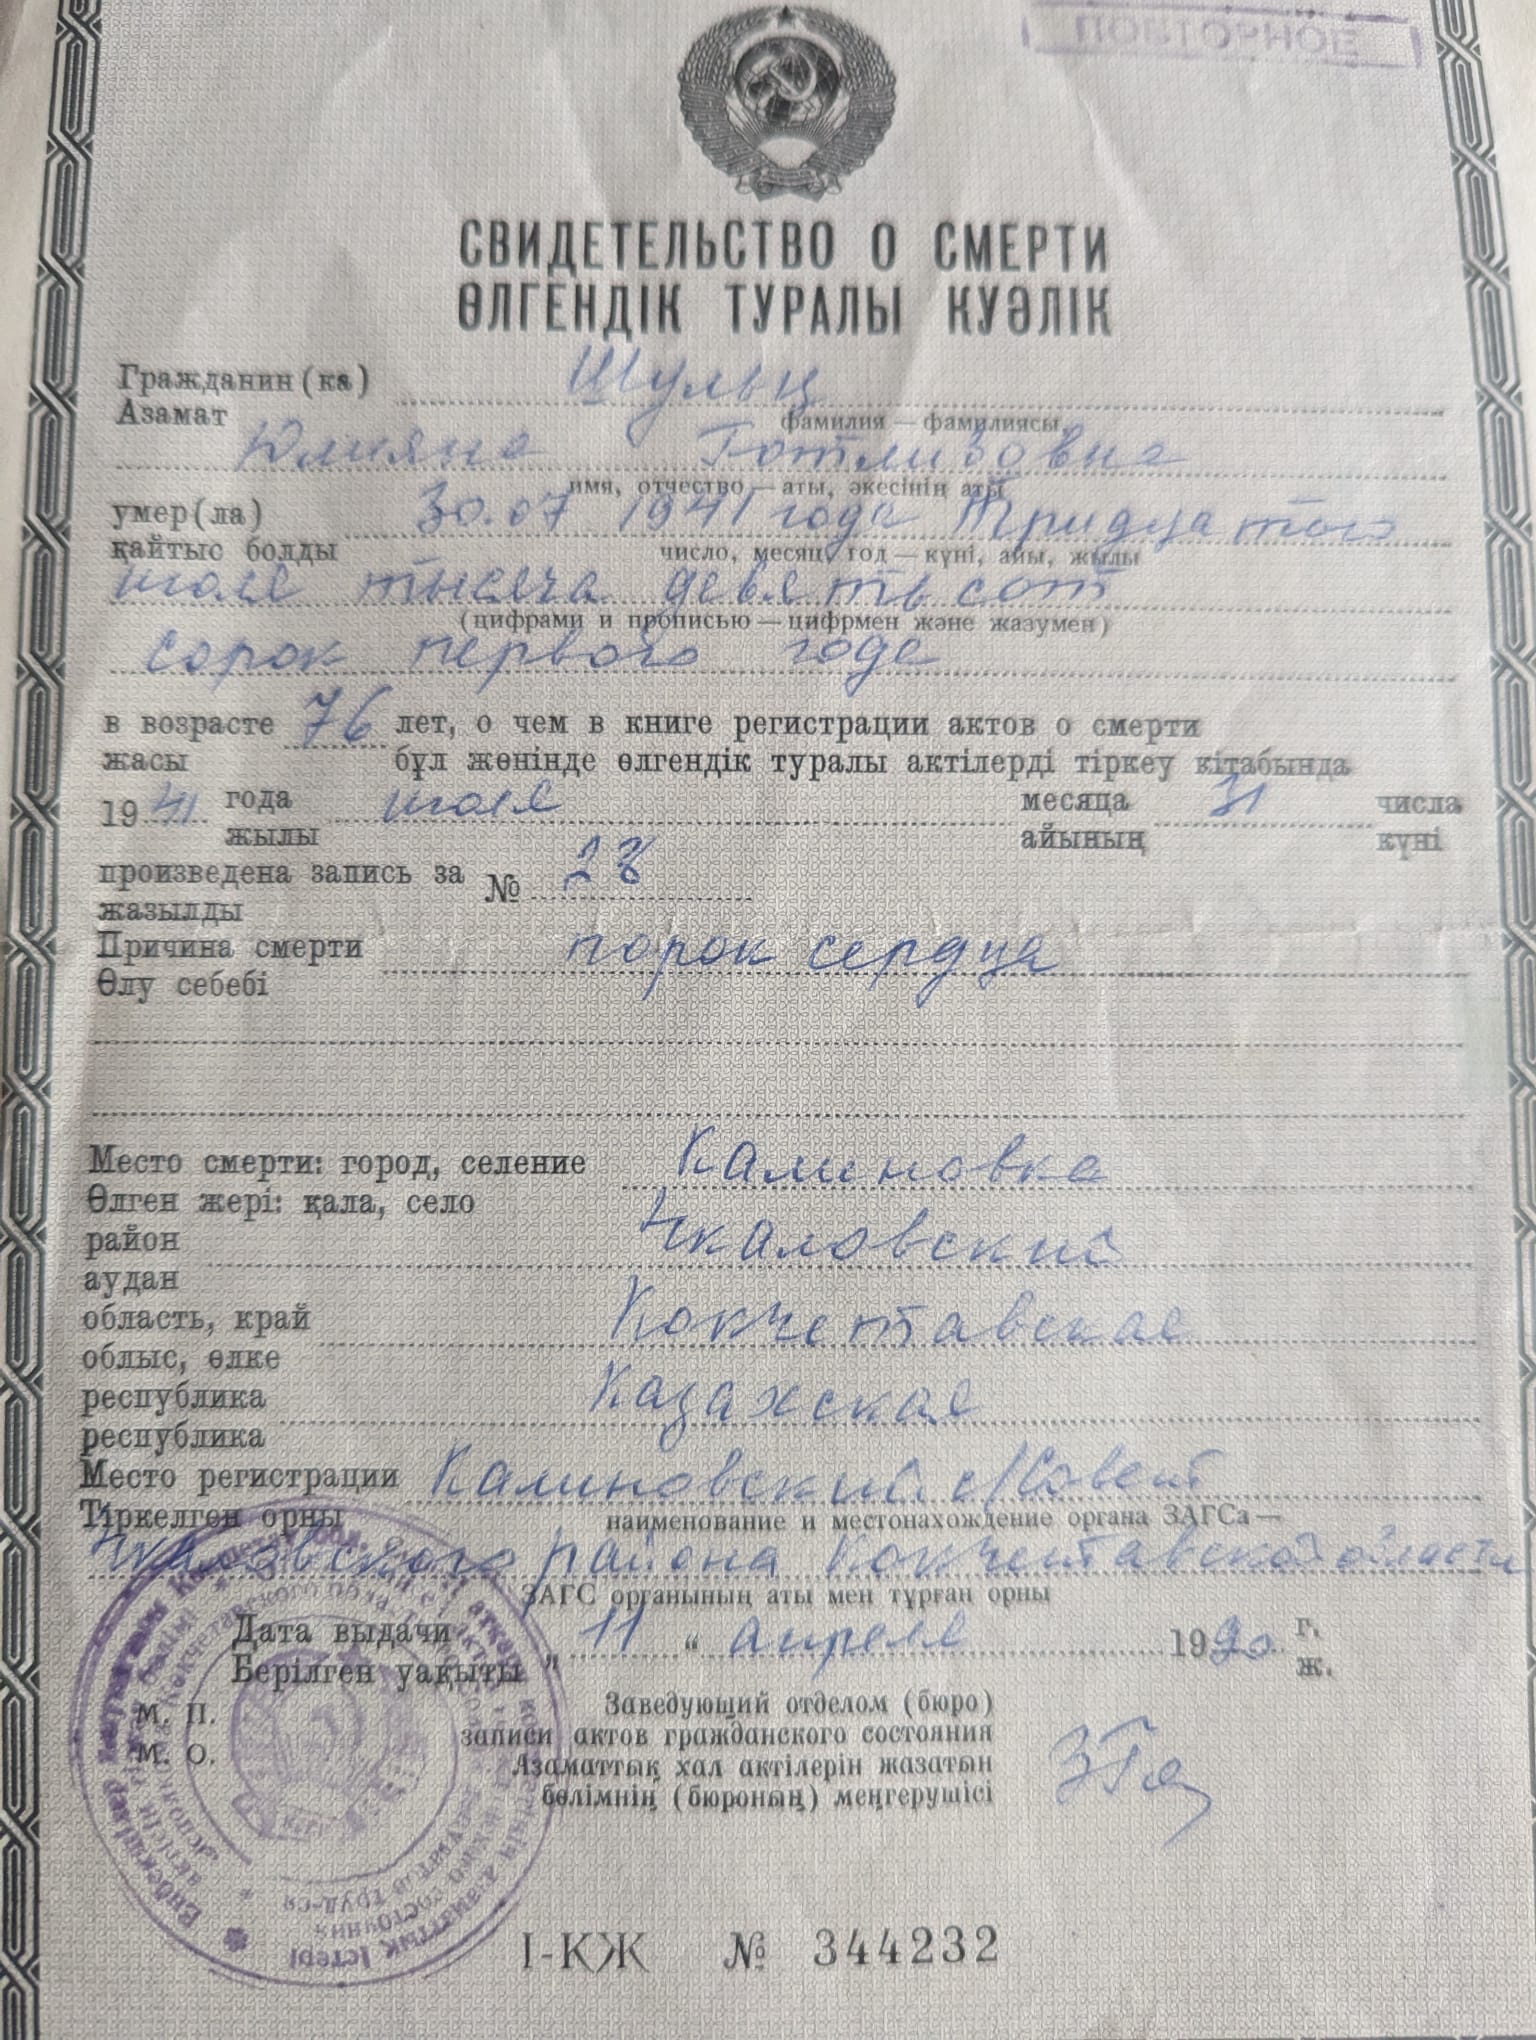 ПОВТОРНОЕ
СВИДЕТЕЛЬСТВО О СМЕРТИ
ӨЛГЕНДІК ТУРАЛЫ КУӘЛІК
Гражданин(ка) Шульц
Азамат
фамилия — фамилиясы
Юлияна Готлибовна
имя, отчество — аты, әкесінің аты
умер(ла) 30.07 1941 года Тридцатого
қайтыс болды
число, месяц, год — күні, айы, жылы
июля тысяча девятьсот
(цифрами и прописью — цифрмен және жазумен)
сорок первого года
в возрасте 76 лет, о чем в книге регистрации актов о смерти
жасы бұл жөнінде өлгендік туралы актілерді тіркеу кітабында
1941 года июля месяца 31 числа
жылы айының күні
произведена запись за № 28
жазылды
Причина смерти порок сердца
Өлу себебі
Место смерти: город, селение Калиновка
Өлген жері: қала, село
район Чкаловский
аудан
область, край Кокчетавская
облыс, өлке
республика Казахская
республика
Место регистрации Калиновский с/Совет
Тіркелген орны
наименование и местонахождение органа ЗАГСа —
Чкаловского района Кокчетавской области
ЗАГС органының аты мен тұрған орны
Дата выдачи „ 11 “ апреля 1990 г.
Берілген уақыты ж.
М. П.
М. О.
Заведующий отделом (бюро)
записи актов гражданского состояния
Азаматтық хал актілерін жазатын
бөлімнің (бюроның) меңгерушісі
I-КЖ № 344232